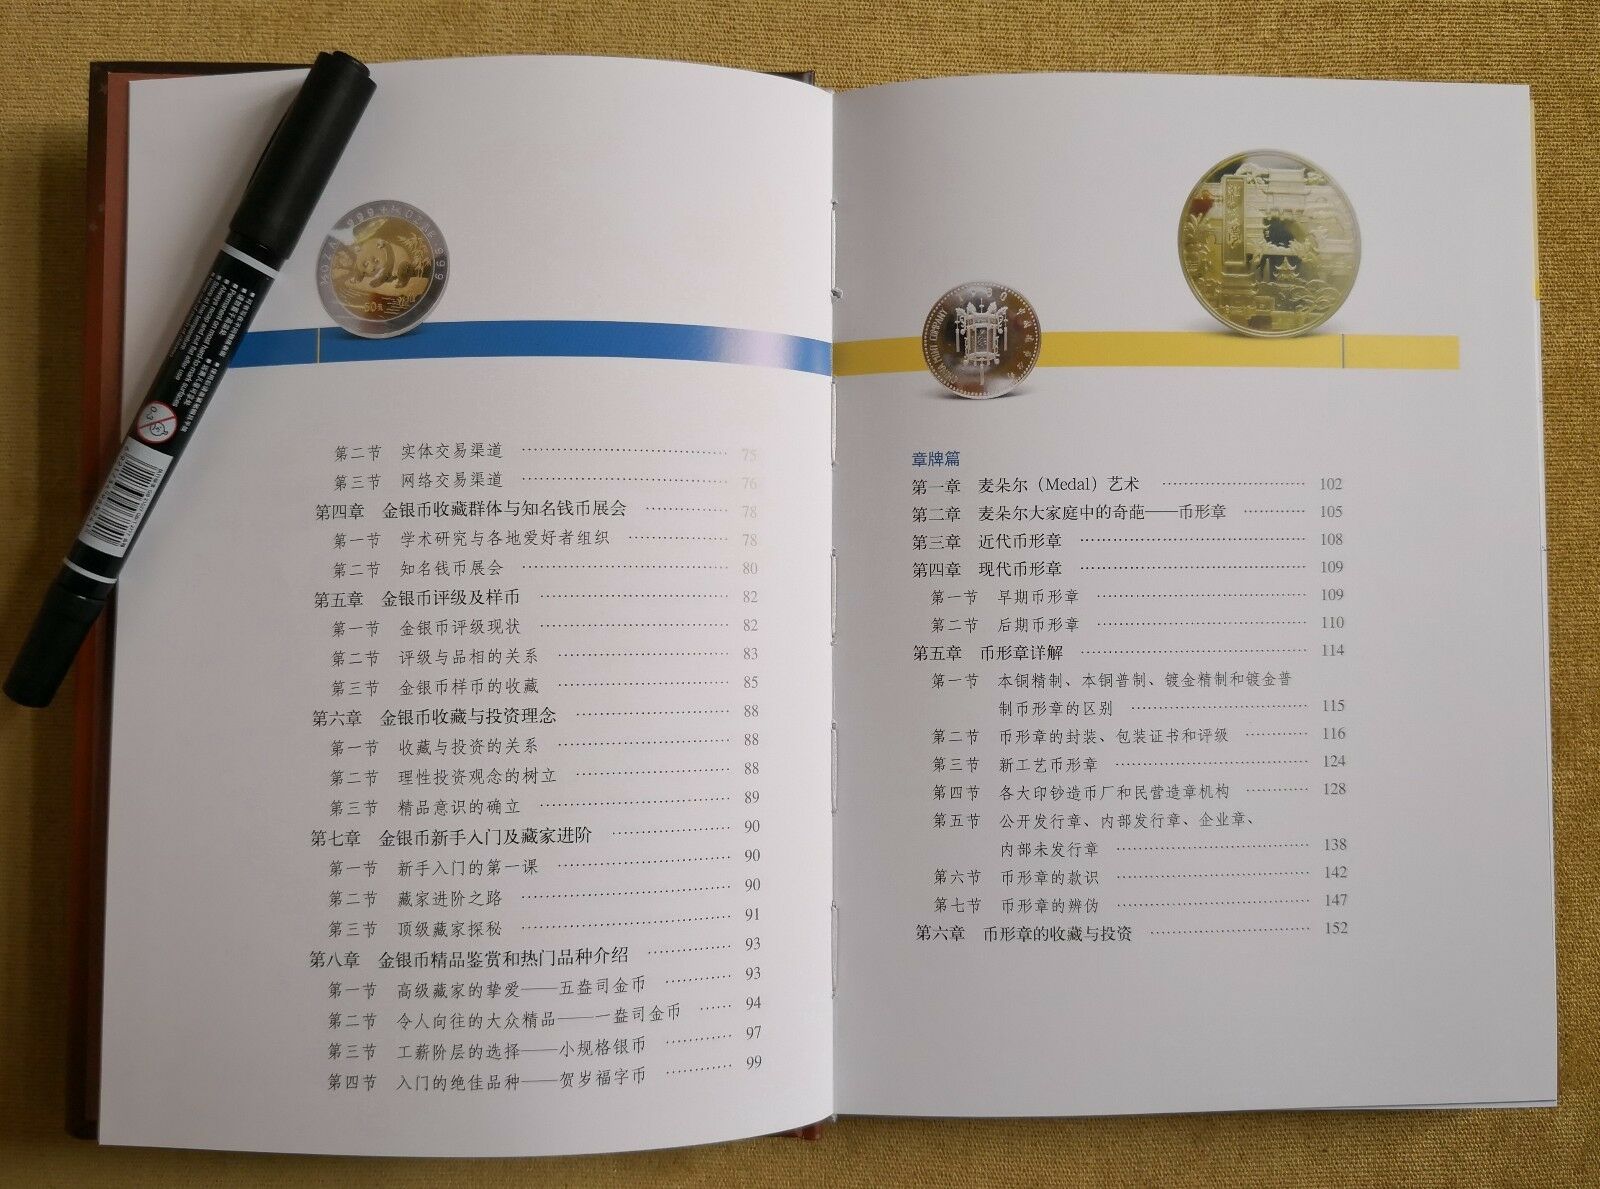 第二节 实体交易渠道 75
第三节 网络交易渠道 76
第四章 金银币收藏群体与知名钱币展会 78
第一节 学术研究与各地爱好者组织 78
第二节 知名钱币展会 80
第五章 金银币评级及样币 82
第一节 金银币评级现状 82
第二节 评级与品相的关系 83
第三节 金银币样币的收藏 85
第六章 金银币收藏与投资理念 88
第一节 收藏与投资的关系 88
第二节 理性投资观念的树立 88
第三节 精品意识的确立 89
第七章 金银币新手入门及藏家进阶 90
第一节 新手入门的第一课 90
第二节 藏家进阶之路 90
第三节 顶级藏家探秘 91
第八章 金银币精品鉴赏和热门品种介绍 93
第一节 高级藏家的挚爱——五盎司金币 93
第二节 令人向往的大众精品——一盎司金币 94
第三节 工薪阶层的选择——小规格银币 97
第四节 入门的绝佳品种——贺岁福字币 99
章牌篇
第一章 麦朵尔（Medal）艺术 102
第二章 麦朵尔大家庭中的奇葩——币形章 105
第三章 近代币形章 108
第四章 现代币形章 109
第一节 早期币形章 109
第二节 后期币形章 110
第五章 币形章详解 114
第一节 本铜精制、本铜普制、镀金精制和镀金普
制币形章的区别 115
第二节 币形章的封装、包装证书和评级 116
第三节 新工艺币形章 124
第四节 各大印钞造币厂和民营造章机构 128
第五节 公开发行章、内部发行章、企业章、
内部未发行章 138
第六节 币形章的款识 142
第七节 币形章的辨伪 147
第六章 币形章的收藏与投资 152
50元
0.3
Permanent on most hard-to-mark surfaces